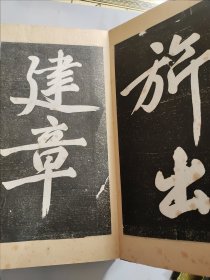 旂出
建章